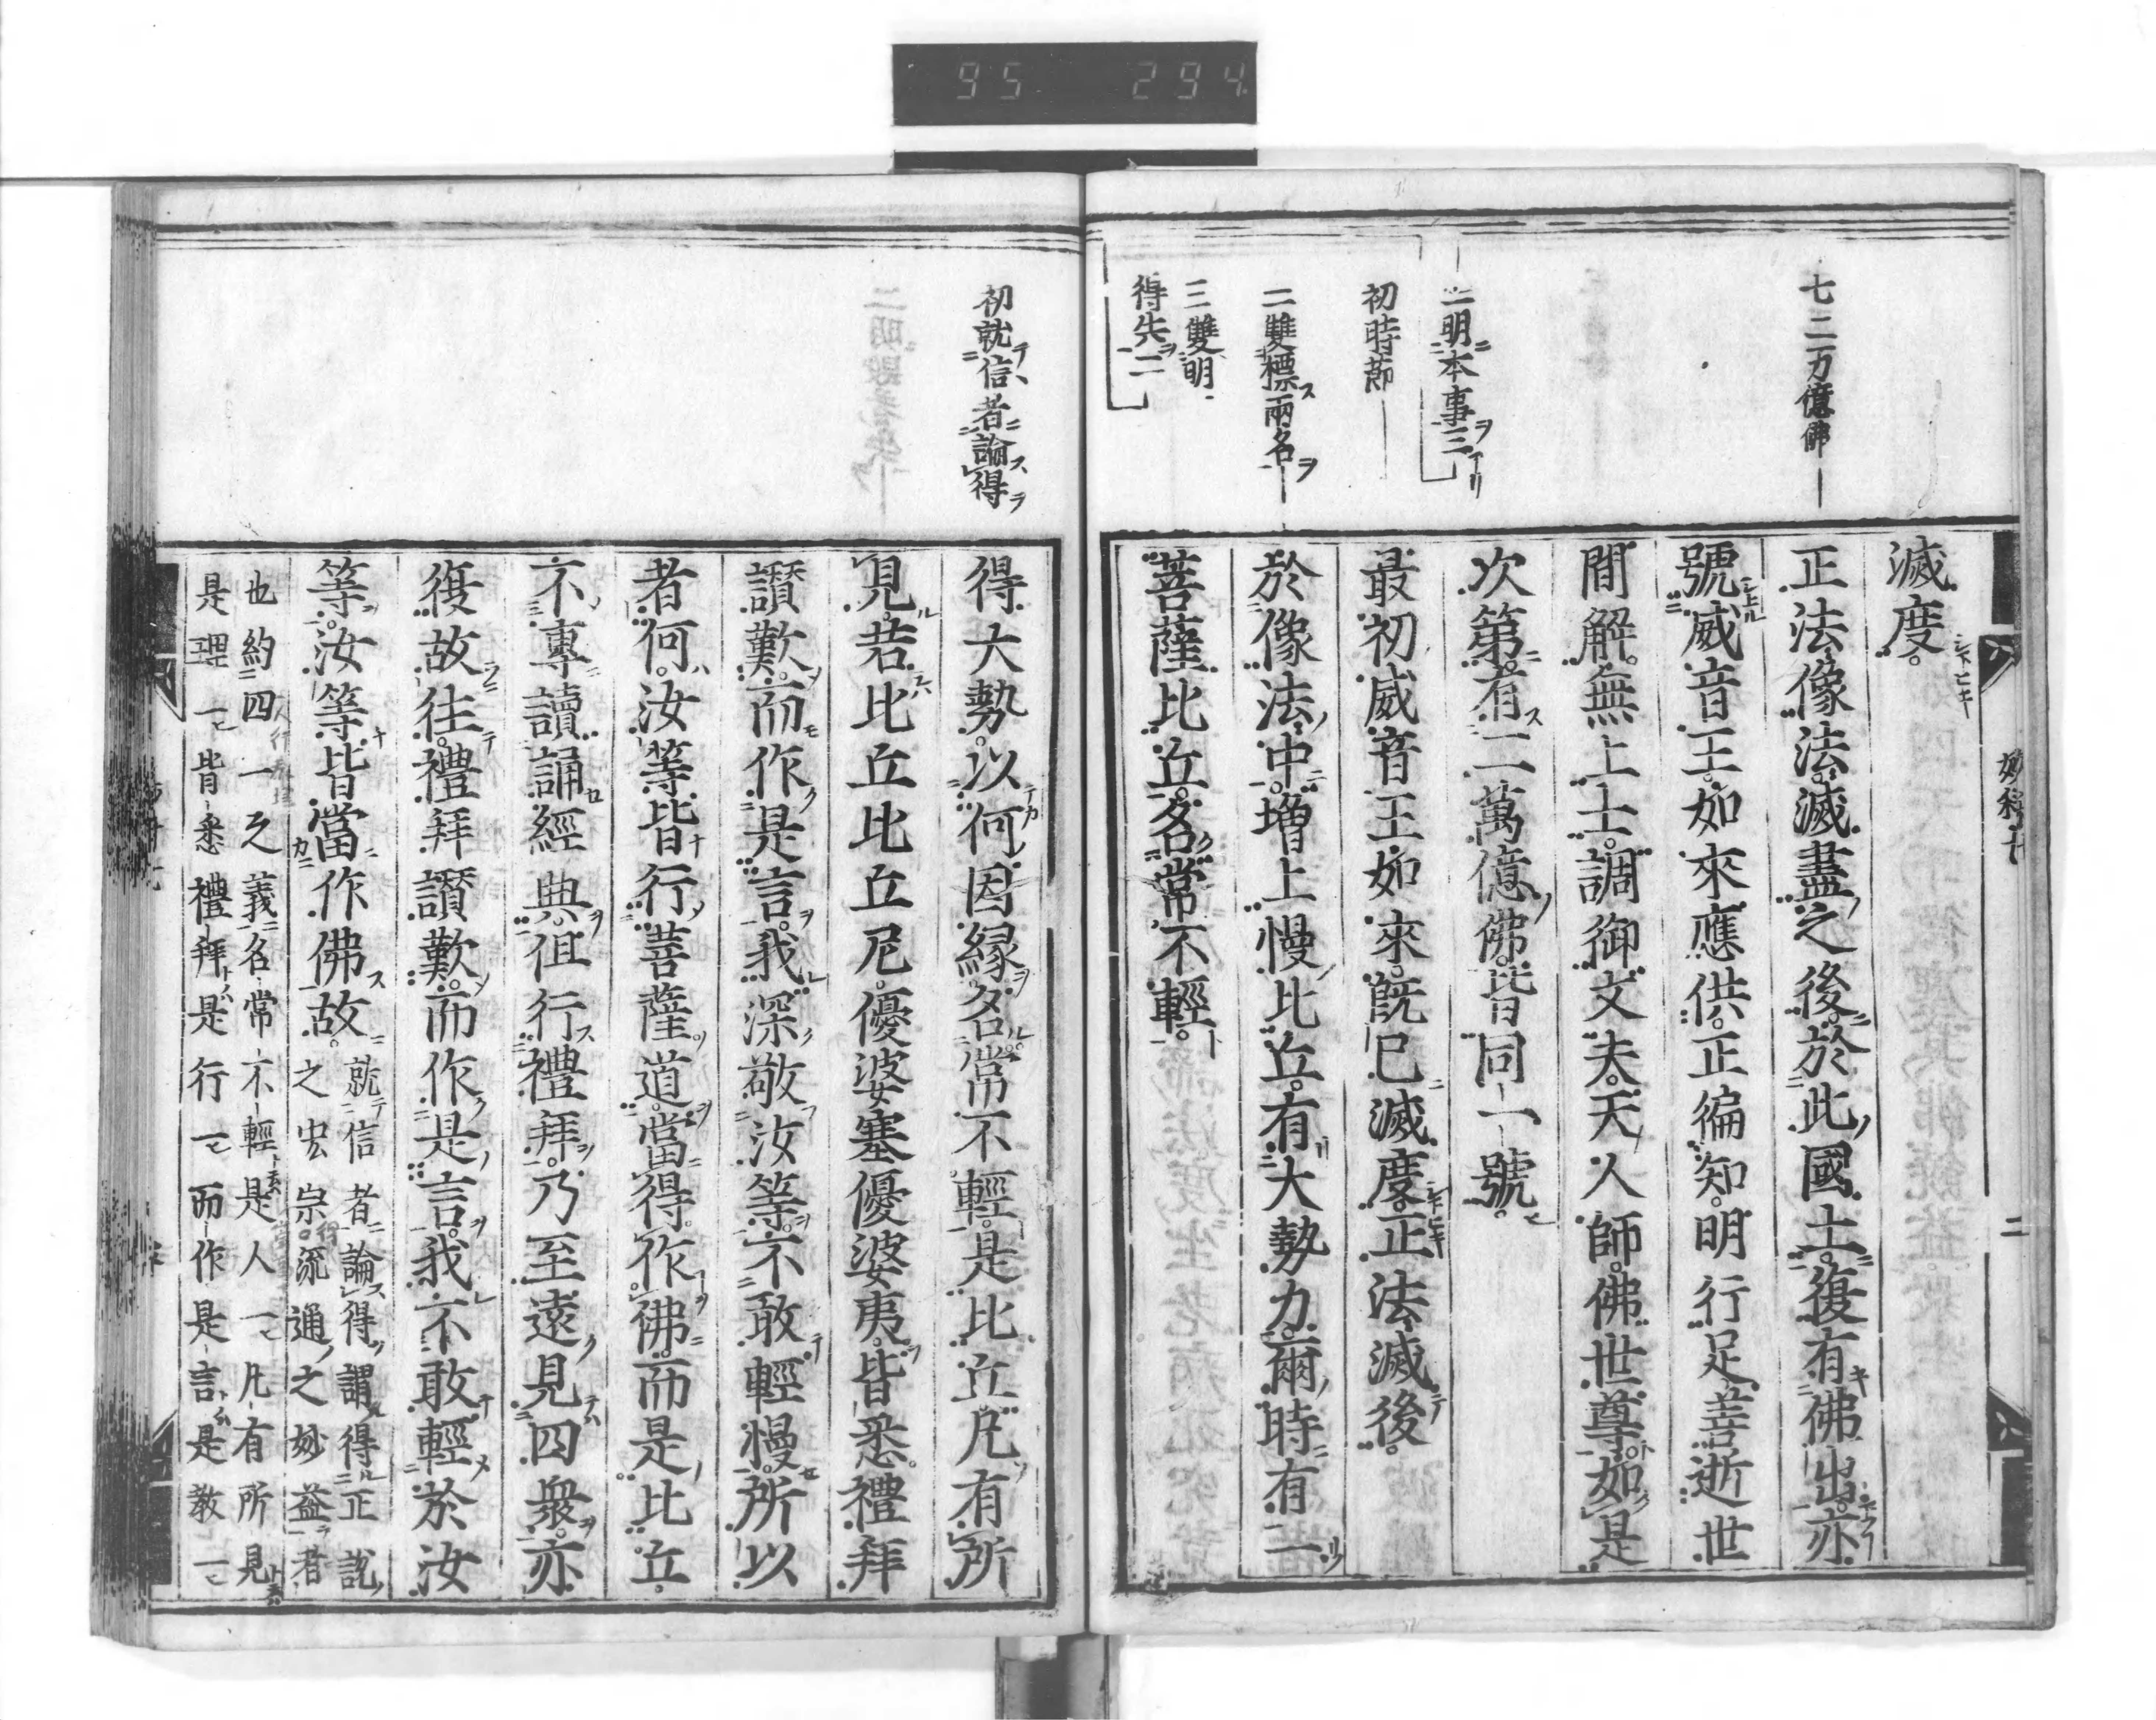 95 294
七二万億佛
二明本事三
初時節
二雙標兩名
三雙明
得失二
滅度。
正法像法滅盡之後。於此國土。復有佛出。亦
號威音王。如來應供。正徧知。明行足。善逝世
間解。無上士。調御丈夫。天人師。佛世尊。如是
次第。有二萬億佛。皆同一號。
最初威音王如來。既已滅度。正法滅後。
於像法中。增上慢比丘。有大勢力。爾時有一
菩薩比丘。名常不輕。
二
初就信者論得
得大勢。以何因緣。名常不輕。是比丘凡有所
見。若比丘比丘尼。優婆塞優婆夷。皆悉禮拜
讚歎。而作是言。我深敬汝等。不敢輕慢。所以
者何。汝等皆行菩薩道。當得作佛。而是比丘。
不專讀誦經典。但行禮拜。乃至遠見四衆。亦
復故往。禮拜讚歎。而作是言。我不敢輕於汝
等。汝等皆當作佛故。
就信者論得謂得正說
之宏宗流通之妙益君
也約四一之義名常不輕是人一凡有所見
是理一皆悉禮拜是行一而作是言是教一